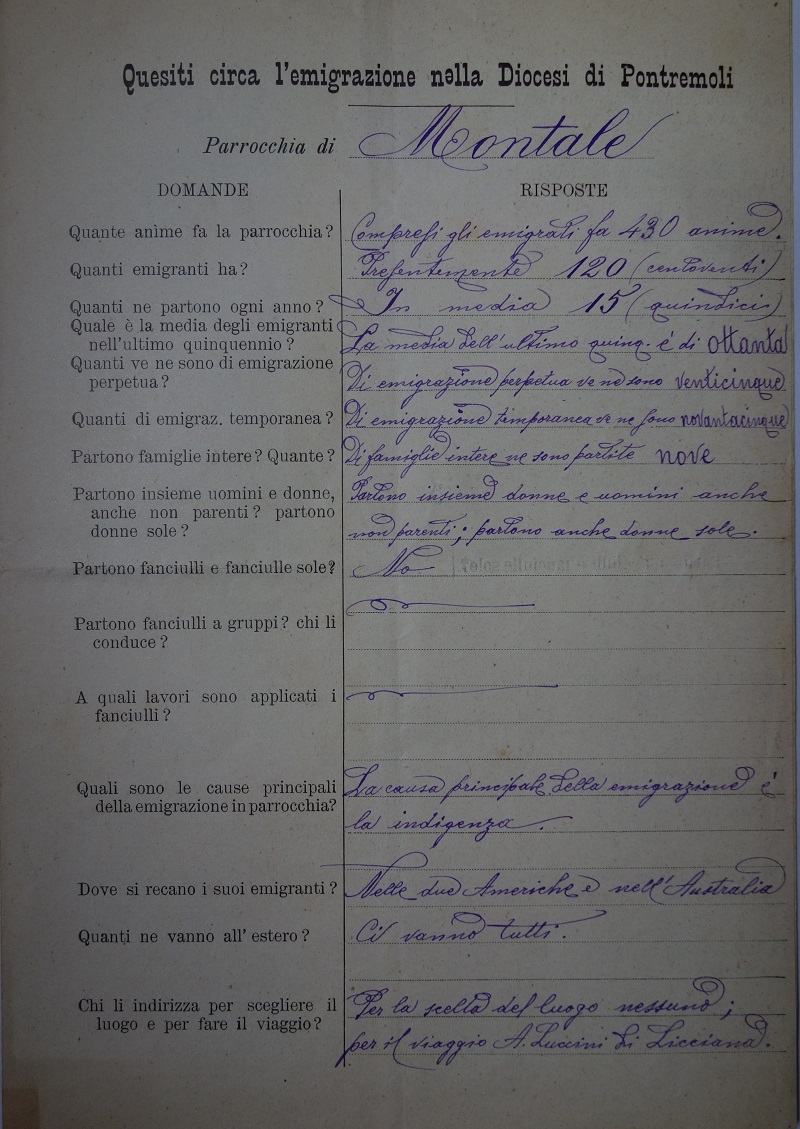 Quesiti circa l'emigrazione nella Diocesi di Pontremoli
Parrocchia di Montale
DOMANDE RISPOSTE
Quante anime fa la parrocchia? Compresi gli emigrati fa 430 anime.
Quanti emigranti ha? Presentemente 120 (centoventi)
Quanti ne partono ogni anno? In media 15 (quindici)
Quale è la media degli emigranti
nell'ultimo quinquennio? La media dell'ultimo quinq. é di ottanta
Quanti ve ne sono di emigrazione
perpetua? Di emigrazione perpetua ve ne sono venticinque
Quanti di emigraz. temporanea? Di emigrazione timporanea ve ne sono novantacinque
Partono famiglie intere? Quante? Di famiglie intere ne sono partite nove
Partono insieme uomini e donne, Partono insieme donne e uomini anche
anche non parenti? partono
donne sole? non parenti; partono anche donne sole.
Partono fanciulli e fanciulle sole? No
Partono fanciulli a gruppi? chi li
conduce?
A quali lavori sono applicati i
fanciulli?
Quali sono le cause principali La causa principale della emigrazione é
della emigrazione in parrocchia? la indigenza.
Dove si recano i suoi emigranti? Nelle due Americhe e nell'Australia
Quanti ne vanno all'estero? Ci vanno tutti.
Chi li indirizza per scegliere il Per la scelta del luogo nessuno;
luogo e per fare il viaggio? per il viaggio A. Luccini di Licciana.